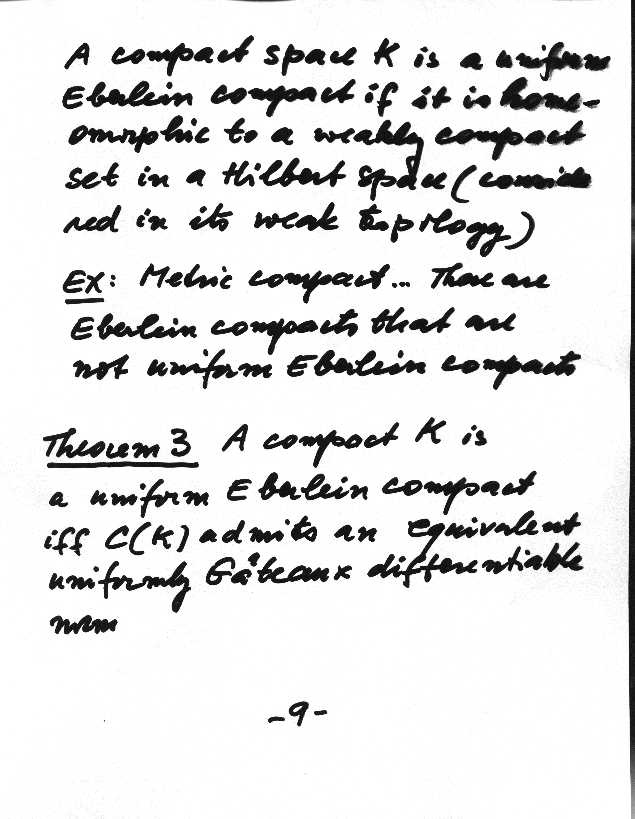 A compact space K is a uniform
Eberlein compact if it is home-
omorphic to a weakly compact
set in a Hilbert space (conside
red in its weak topology)
Ex: Metric compact... There are
Eberlein compacts that are
not uniform Eberlein compacts
Theorem 3 A compact K is
a uniform Eberlein compact
iff C(K) admits an equivalent
uniformly Gâteaux differentiable
norm
-9-